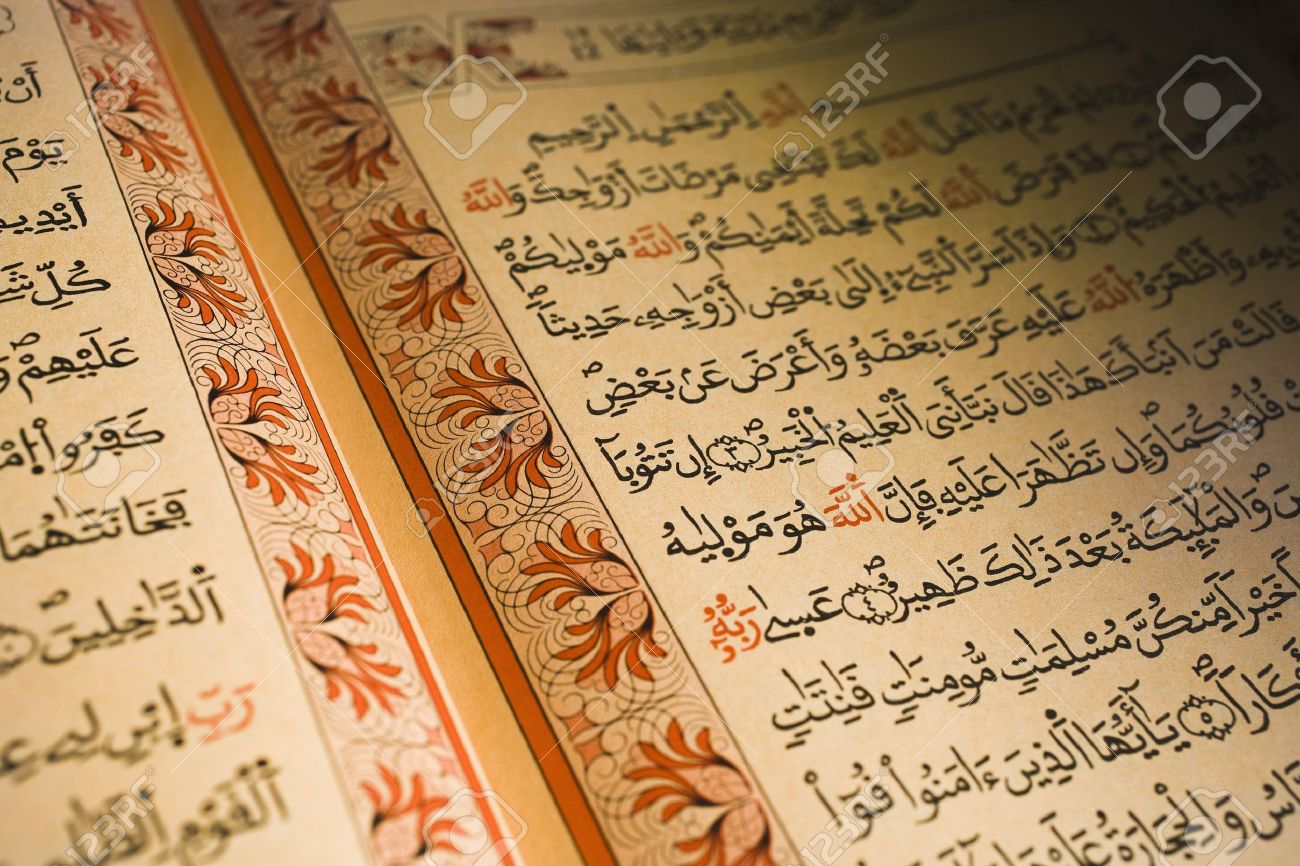 اَللَّهِ اِلرَّحْمَٰنِ اِلرَّحِيمِ
تُحَرِّمُ مَآ أَحَلَّ اَللَّهُ لَكَ تَبْتَغِى مَرْضَاتَ أَزْوَٰجِكَ وَاللَّهُ
قَدْ فَرَضَ اَللَّهُ لَكُمْ تَحِلَّةَ أَيْمَٰنِكُمْ وَاللَّهُ مَوْلِيٰكُمْ
اَلْعَلِيمُ الْحَكِيمُ ٢ وَإِذَ اَسَرَّ اَلنَّبِيٓءُ اِلَىٰ بَعْضِ أَزْوَٰجِهِۦ حَدِيثاً
وَأَظْهَرَهُ اُللَّهُ عَلَيْهِ عَرَّفَ بَعْضَهُۥ وَأَعْرَضَ عَنۢ بَعْضٍ
قَالَتْ مَنَ اَنۢبَأَكَ هَٰذَا قَالَ نَبَّأَنِيَ اَلْعَلِيمُ الْخَبِيرُ ٣ إِن تَتُوبَآ
قُلُوبُكُمَا وَإِن تَظَّٰهَرَا عَلَيْهِ فَإِنَّ اَللَّهَ هُوَ مَوْلِيٰهُ
وَالْمَلَٰٓئِكَةُ بَعْدَ ذَٰلِكَ ظَهِيرٌ ٤ عَسىٰ رَبُّهُۥٓ
خَيْراً مِّنكُنَّ مُسْلِمَٰتٍ مُّومِنَٰتٍ قَٰنِتَٰتٍ
كَاراً ٥ يَٰٓأَيُّهَا اَلذِينَ ءَامَنُواْ قُوٓاْ
اسُ وَالْحِجَارَةُ عَلَيْهَا
أَنْ
يَوْمَ
أَيْدِيهِ
كُلِّ شَے
عَلَيْهِمْ وَ
كَفَرُواْ اُمْ
فَخَانَتَٰهُمَا
اَلدَّٰخِلِينَ
رَبِّ اِبْنِ لِي عِ
اَلْقَوْمِ اِلظَّٰلِ
123RF